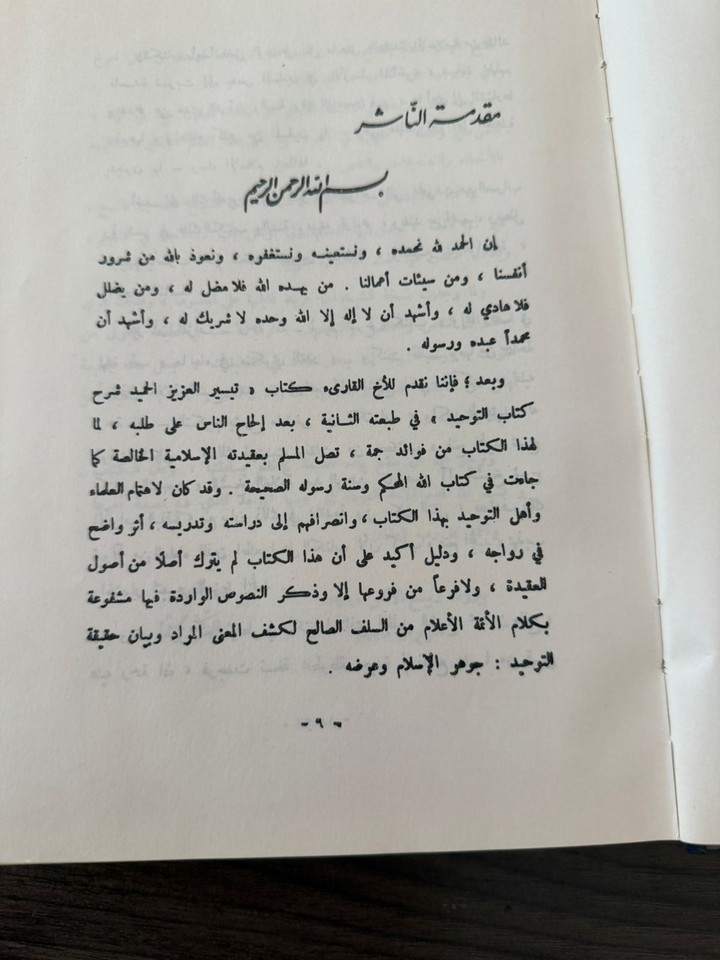 مقدمة النّاشر
بسم الله الرحمن الرحيم
إن الحمد لله نحمده ، ونستعينه ونستغفره ، ونعوذ بالله من شرور
أنفسنا ، ومن سيئات أعمالنا . من يهده الله فلا مضل له ، ومن يضلل
فلا هادي له ، وأشهد أن لا إله إلا الله وحده لا شريك له ، وأشهد أن
محمداً عبده ورسوله .
وبعد ؛ فإننا نقدم للأخ القارىء كتاب « تيسير العزيز الحميد شرح
كتاب التوحيد » في طبعته الثانية ، بعد إلحاح الناس على طلبه ، لما
لهذا الكتاب من فوائد جمة ، تصل المسلم بعقيدته الإسلامية الخالصة كما
جاءت في كتاب الله المحكم وسنة رسوله الصحيحة . وقد كان لاهتمام العلماء
وأهل التوحيد بهذا الكتاب ، وانصرافهم إلى دراسته وتدريسه ، أثر واضح
في رواجه ، ودليل أكيد على أن هذا الكتاب لم يترك أصلًا من أصول
العقيدة ، ولا فرعاً من فروعها إلا وذكر النصوص الواردة فيها مشفوعة
بكلام الأئمة الأعلام من السلف الصالح لكشف المعنى المراد وبيان حقيقة
التوحيد : جوهر الإسلام وعرضه .
- ٩ -